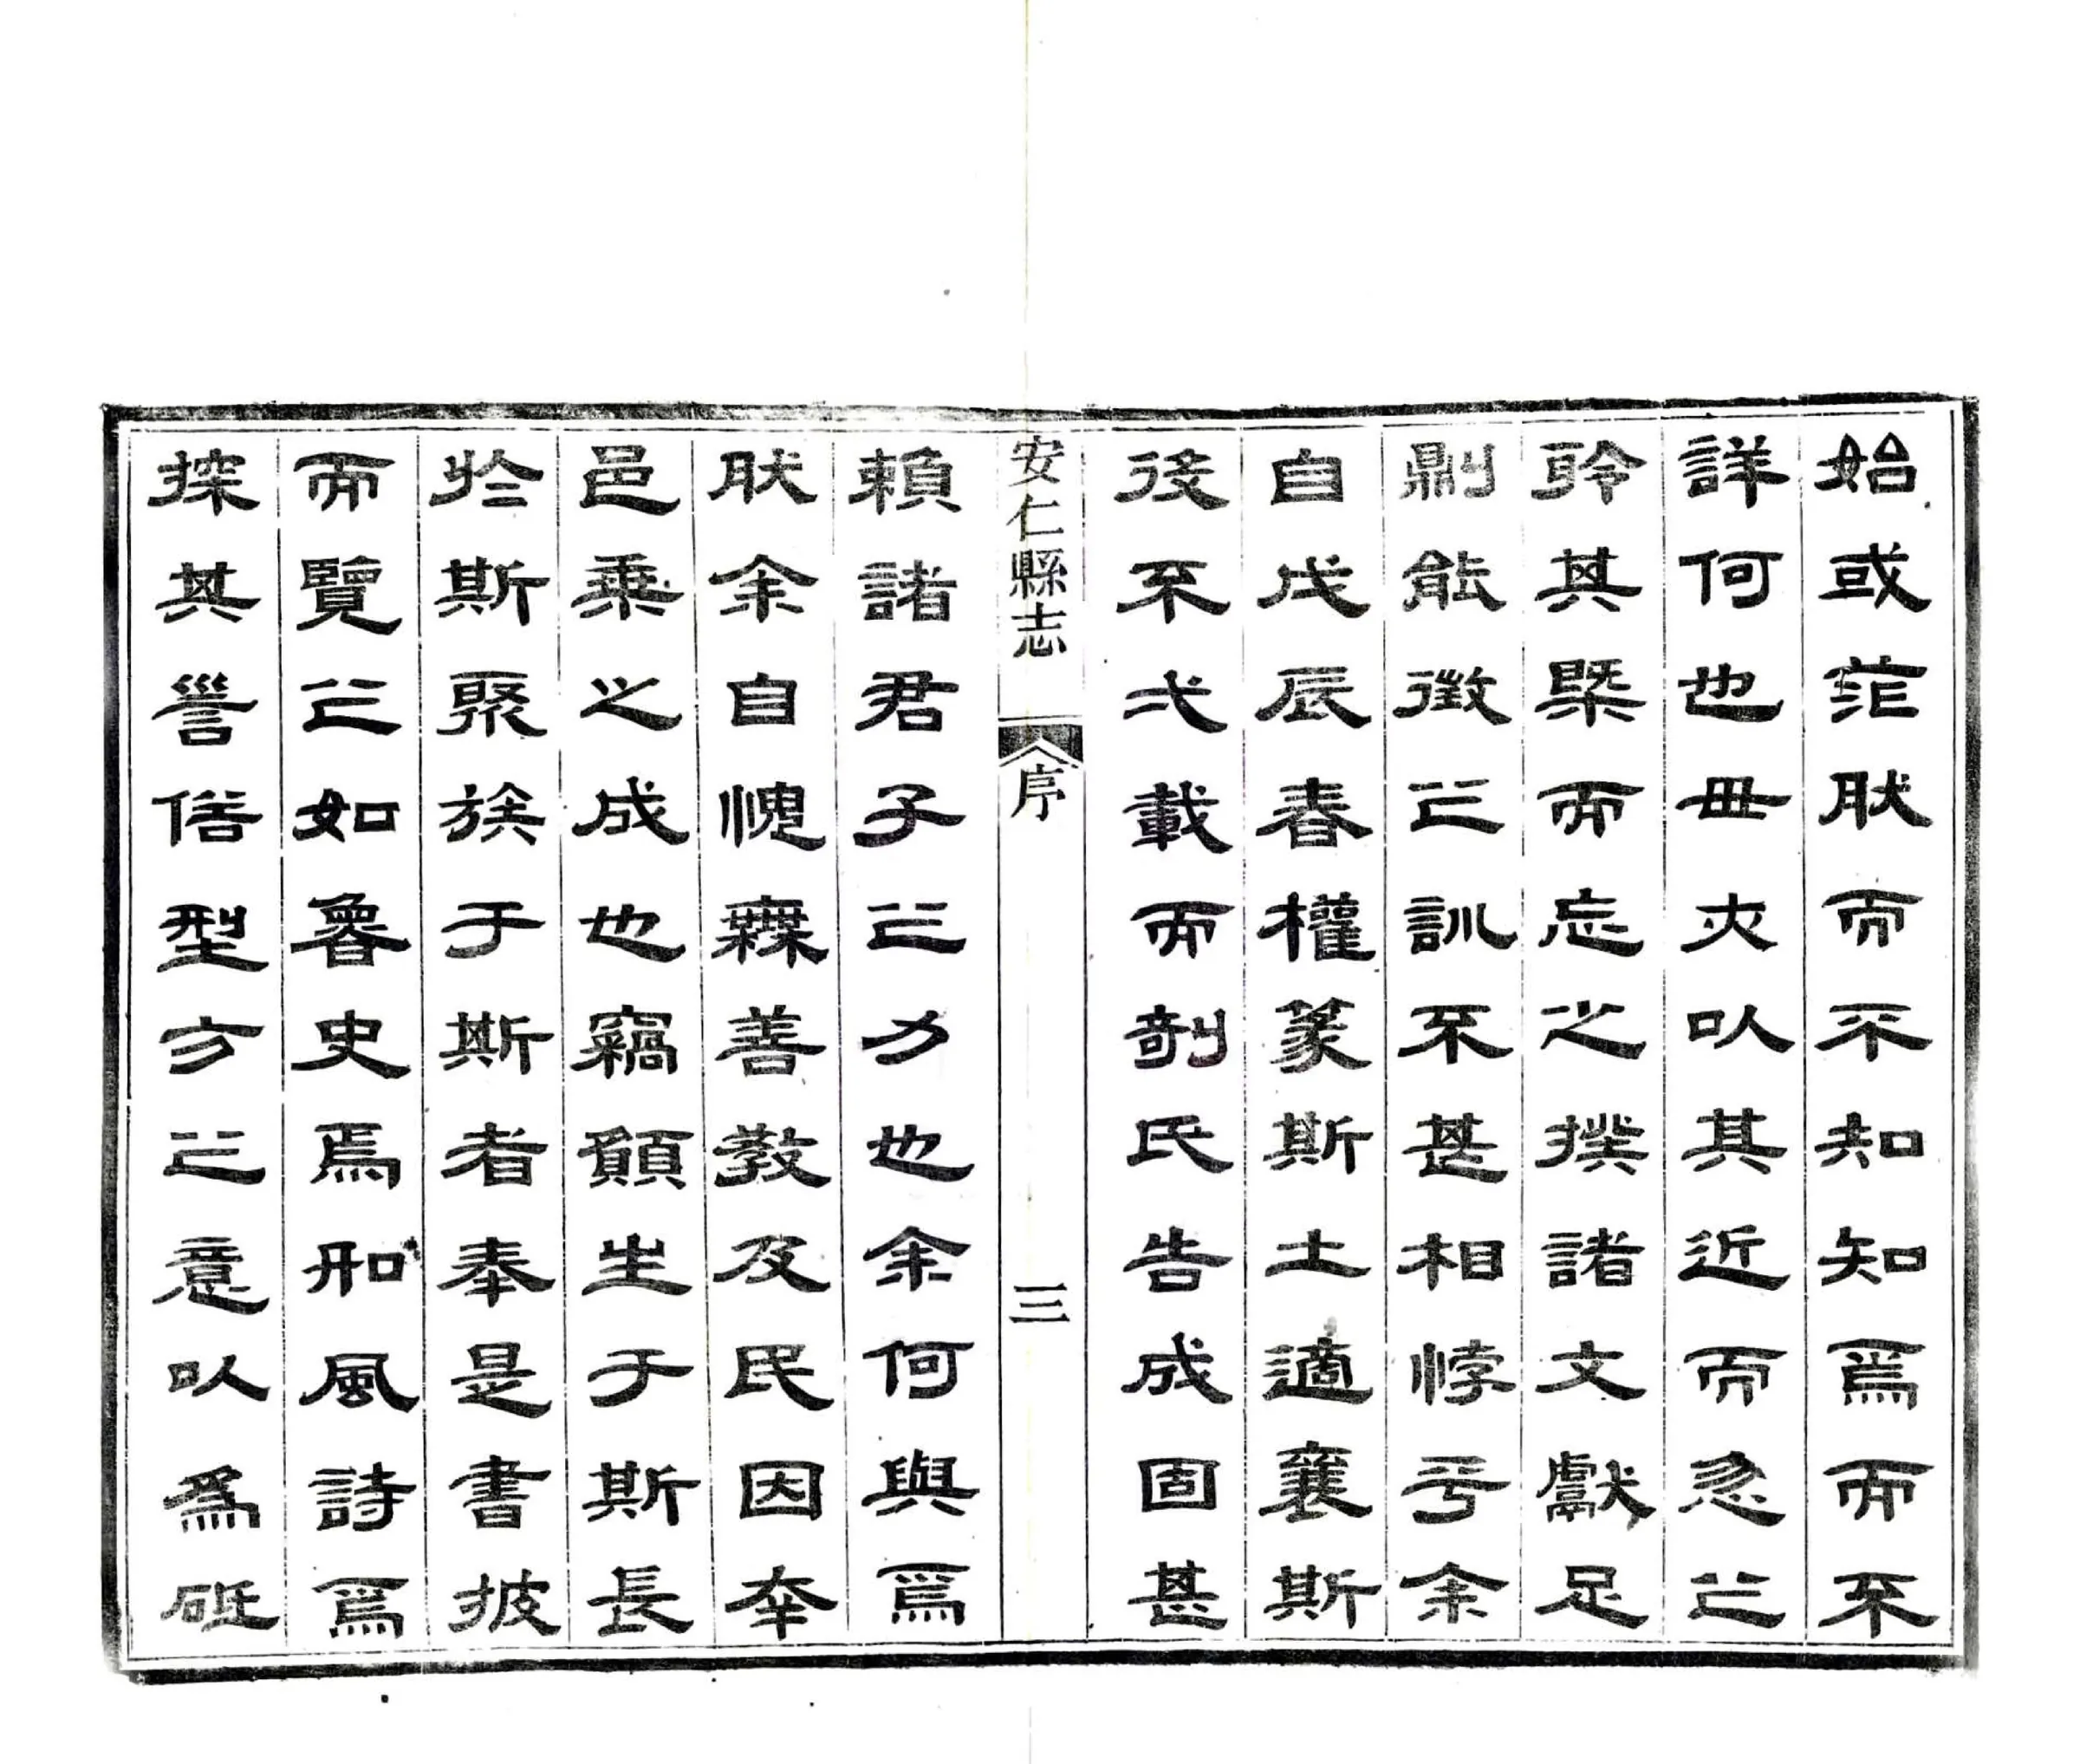 始或茫肰而不知知焉而不
詳何也毋亦以其近而忽之
聆其槩而忘之揆諸文獻足
則能徵之訓不甚相悖乎余
自戊辰春權篆斯土適襄斯
役不弍載而剞氏告成固甚
安仁縣志 序 三
賴諸君子之力也余何與焉
肰余自愧無善教及民因幸
邑乘之成也竊願生于斯長
於斯聚族于斯者奉是書披
而覽之如魯史焉風詩焉
探其訓俗型方之意以為砥